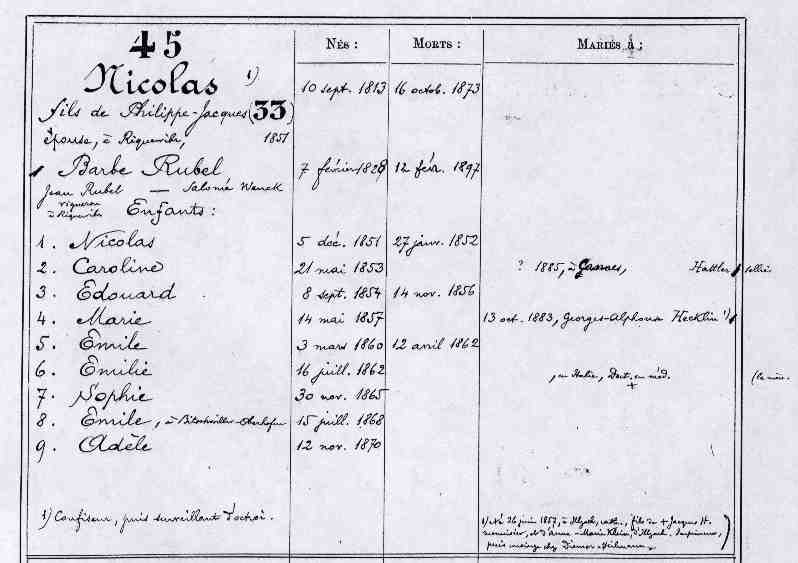 45
NÉS : MORTS : MARIÉS à :
Nicolas 1) 10 sept. 1813 16 octob. 1873
fils de Philippe-Jacques (33)
épouse, à Riquewihr, 1851
Barbe Rubel 7 février 1828 12 févr. 1897
Jean Rubel — Salomé Wenck
vigneron
à Riquewihr
Enfants :
1. Nicolas 5 déc. 1851 27 janv. 1852
2. Caroline 21 mai 1853 ? 1885, à Hattler, sellier
3. Edouard 8 sept. 1854 14 nov. 1856
4. Marie 14 mai 1857 13 oct. 1883, Georges-Alphonse Hecklin 1)
5. Emile 3 mars 1860 12 avril 1862
6. Emilie 16 juill. 1862 , en Italie, Doct. en méd. +
7. Sophie 30 nov. 1865
8. Emile, à Bitschwiller 15 juill. 1868
9. Adèle 12 nov. 1870
1) Confiseur, puis surveillant d'octroi.
1) Né 26 juin 1857, à Illzach, cath., fils de + Jacques H.
menuisier, et d'Anne-Marie Klein, d'Illzach. Imprimeur,
puis chez